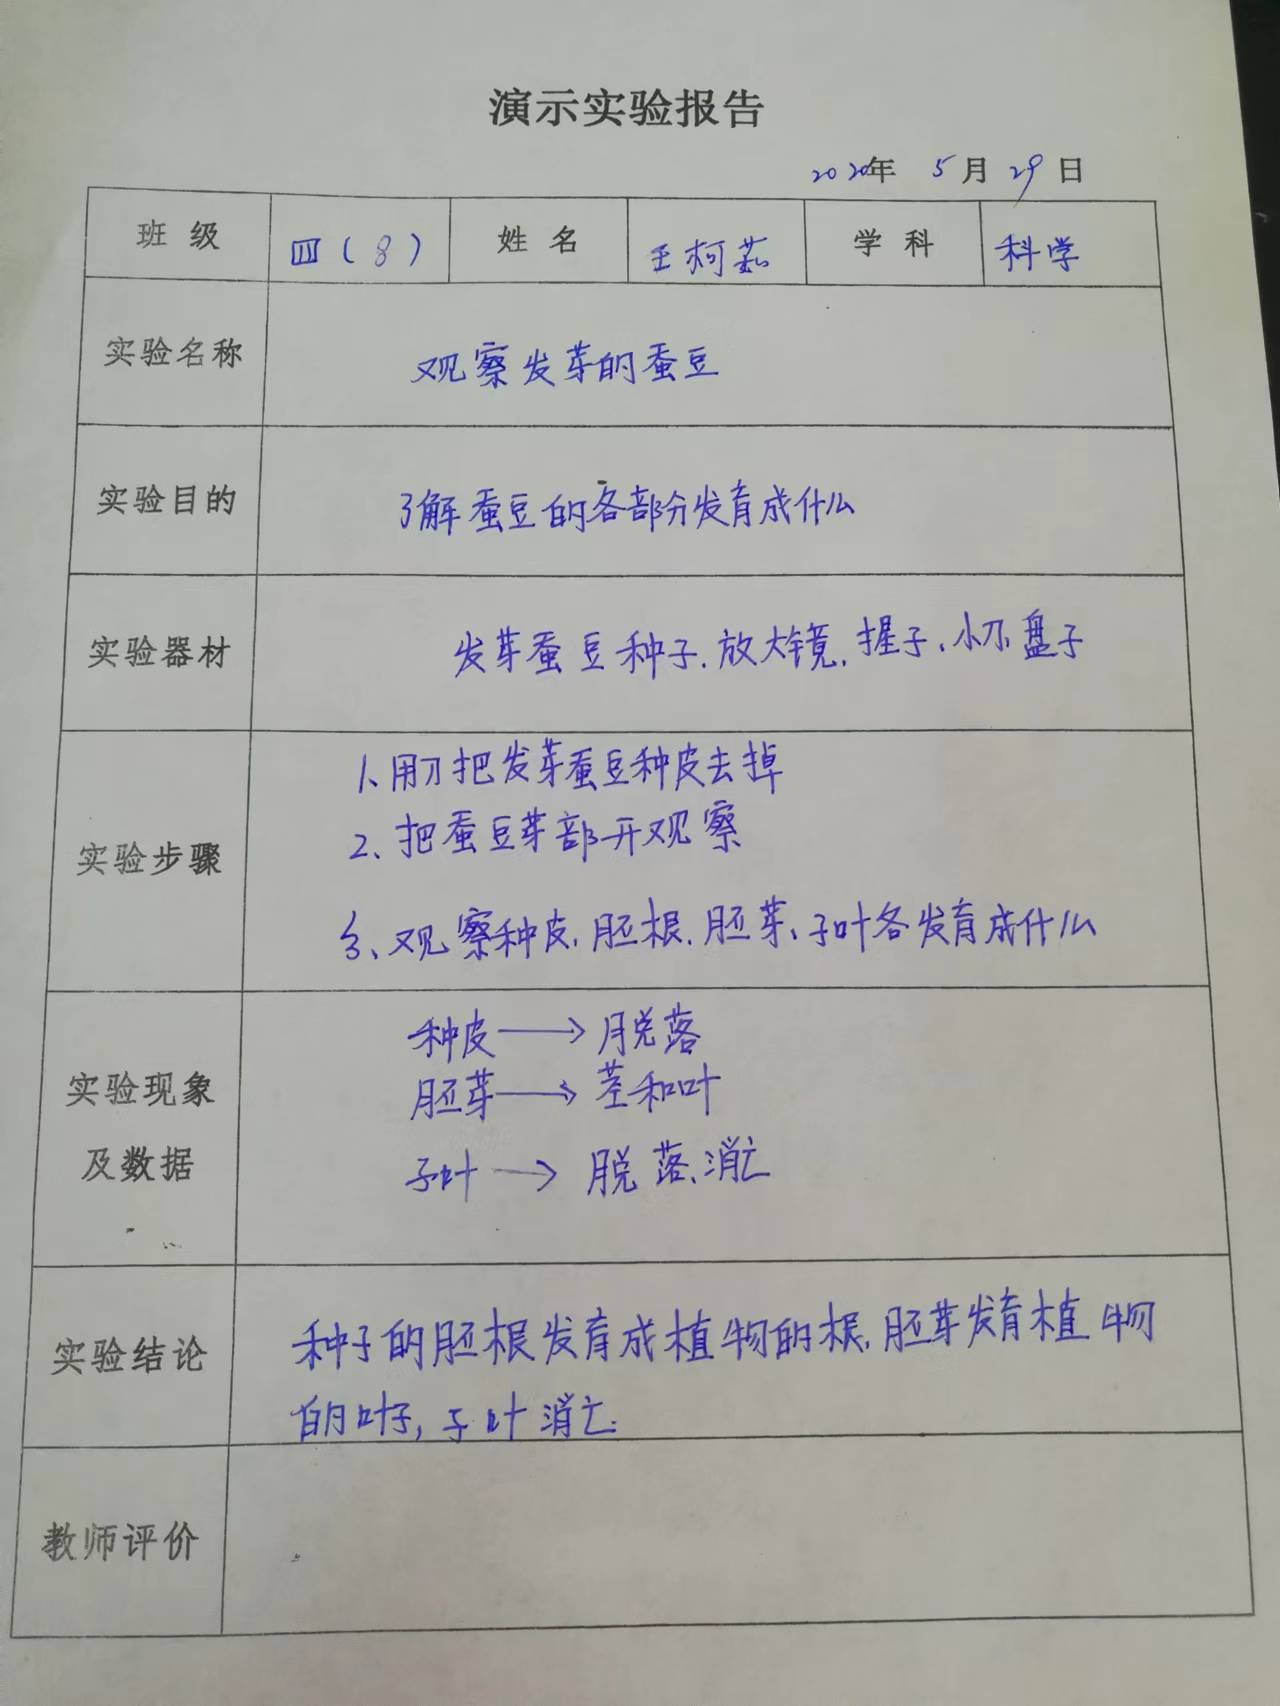 演示实验报告
2020年 5月29日
班级 四(8) 姓名 王柯茹 学科 科学
实验名称 观察发芽的蚕豆
实验目的 了解蚕豆的各部分发育成什么
实验器材 发芽蚕豆种子、放大镜、握子、小刀、盘子
实验步骤
1、用刀把发芽蚕豆种皮去掉
2、把蚕豆芽部开观察
3、观察种皮、胚根、胚芽、子叶各发育成什么
实验现象
及数据
种皮→脱落
胚芽→茎和叶
子叶→脱落、消亡
实验结论
种子的胚根发育成植物的根,胚芽发育植物
的叶子,子叶消亡.
教师评价